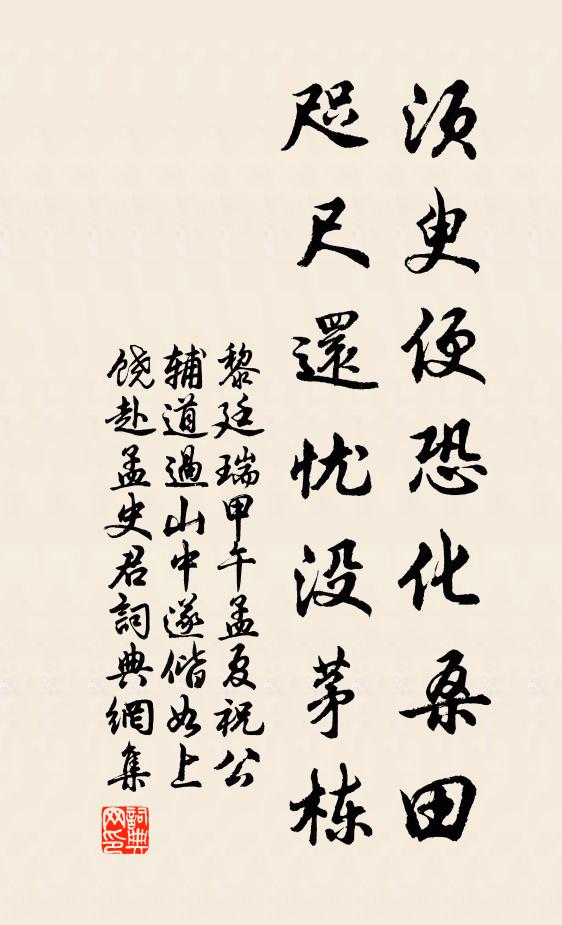 须臾便恐化桑田
咫尺還忧没茅栋
黎廷瑞甲午孟夏祝公
辅道過山中遂偕如上
饶赴孟史君詞典網集
詞典網印